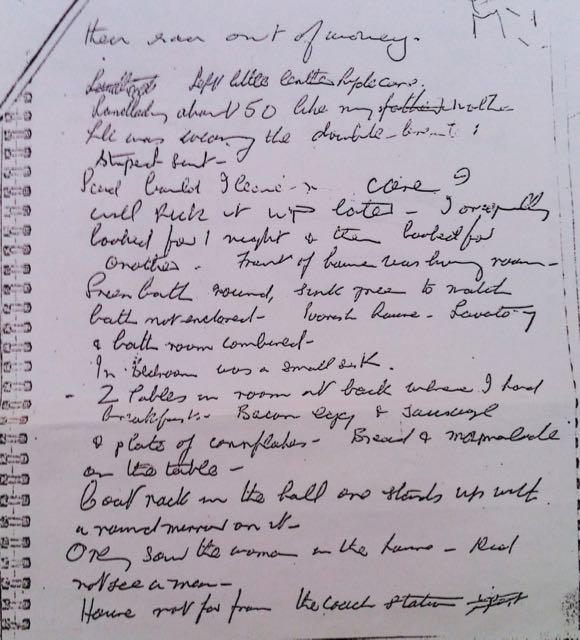 then ran out of money.
Left little leather type case.
Landlady about 50 like my father mother
He was wearing the double-breast
striped suit -
Said could I leave case &
will pick it up later - I originally
booked for 1 night & then booked for
another. Front of house was living room -
Green bath round, sink green to match
bath not enclosed - house - Lavatory
& bath room combined -
In Bedroom was a small sink.
- 2 tables in room at back where I had
breakfast - Bacon egg & sausage
& plate of cornflakes - Bread & marmalade
on the table -
Coat rack in the hall one stands up with
a round mirror on it -
Only saw the woman in the house - Did
not see a man -
House not far from the coach station